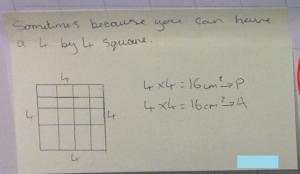 Sometimes because you can have
a 4 by 4 square.
4
4 4
4
4 × 4 = 16cm² → P
4 × 4 = 16cm² → A